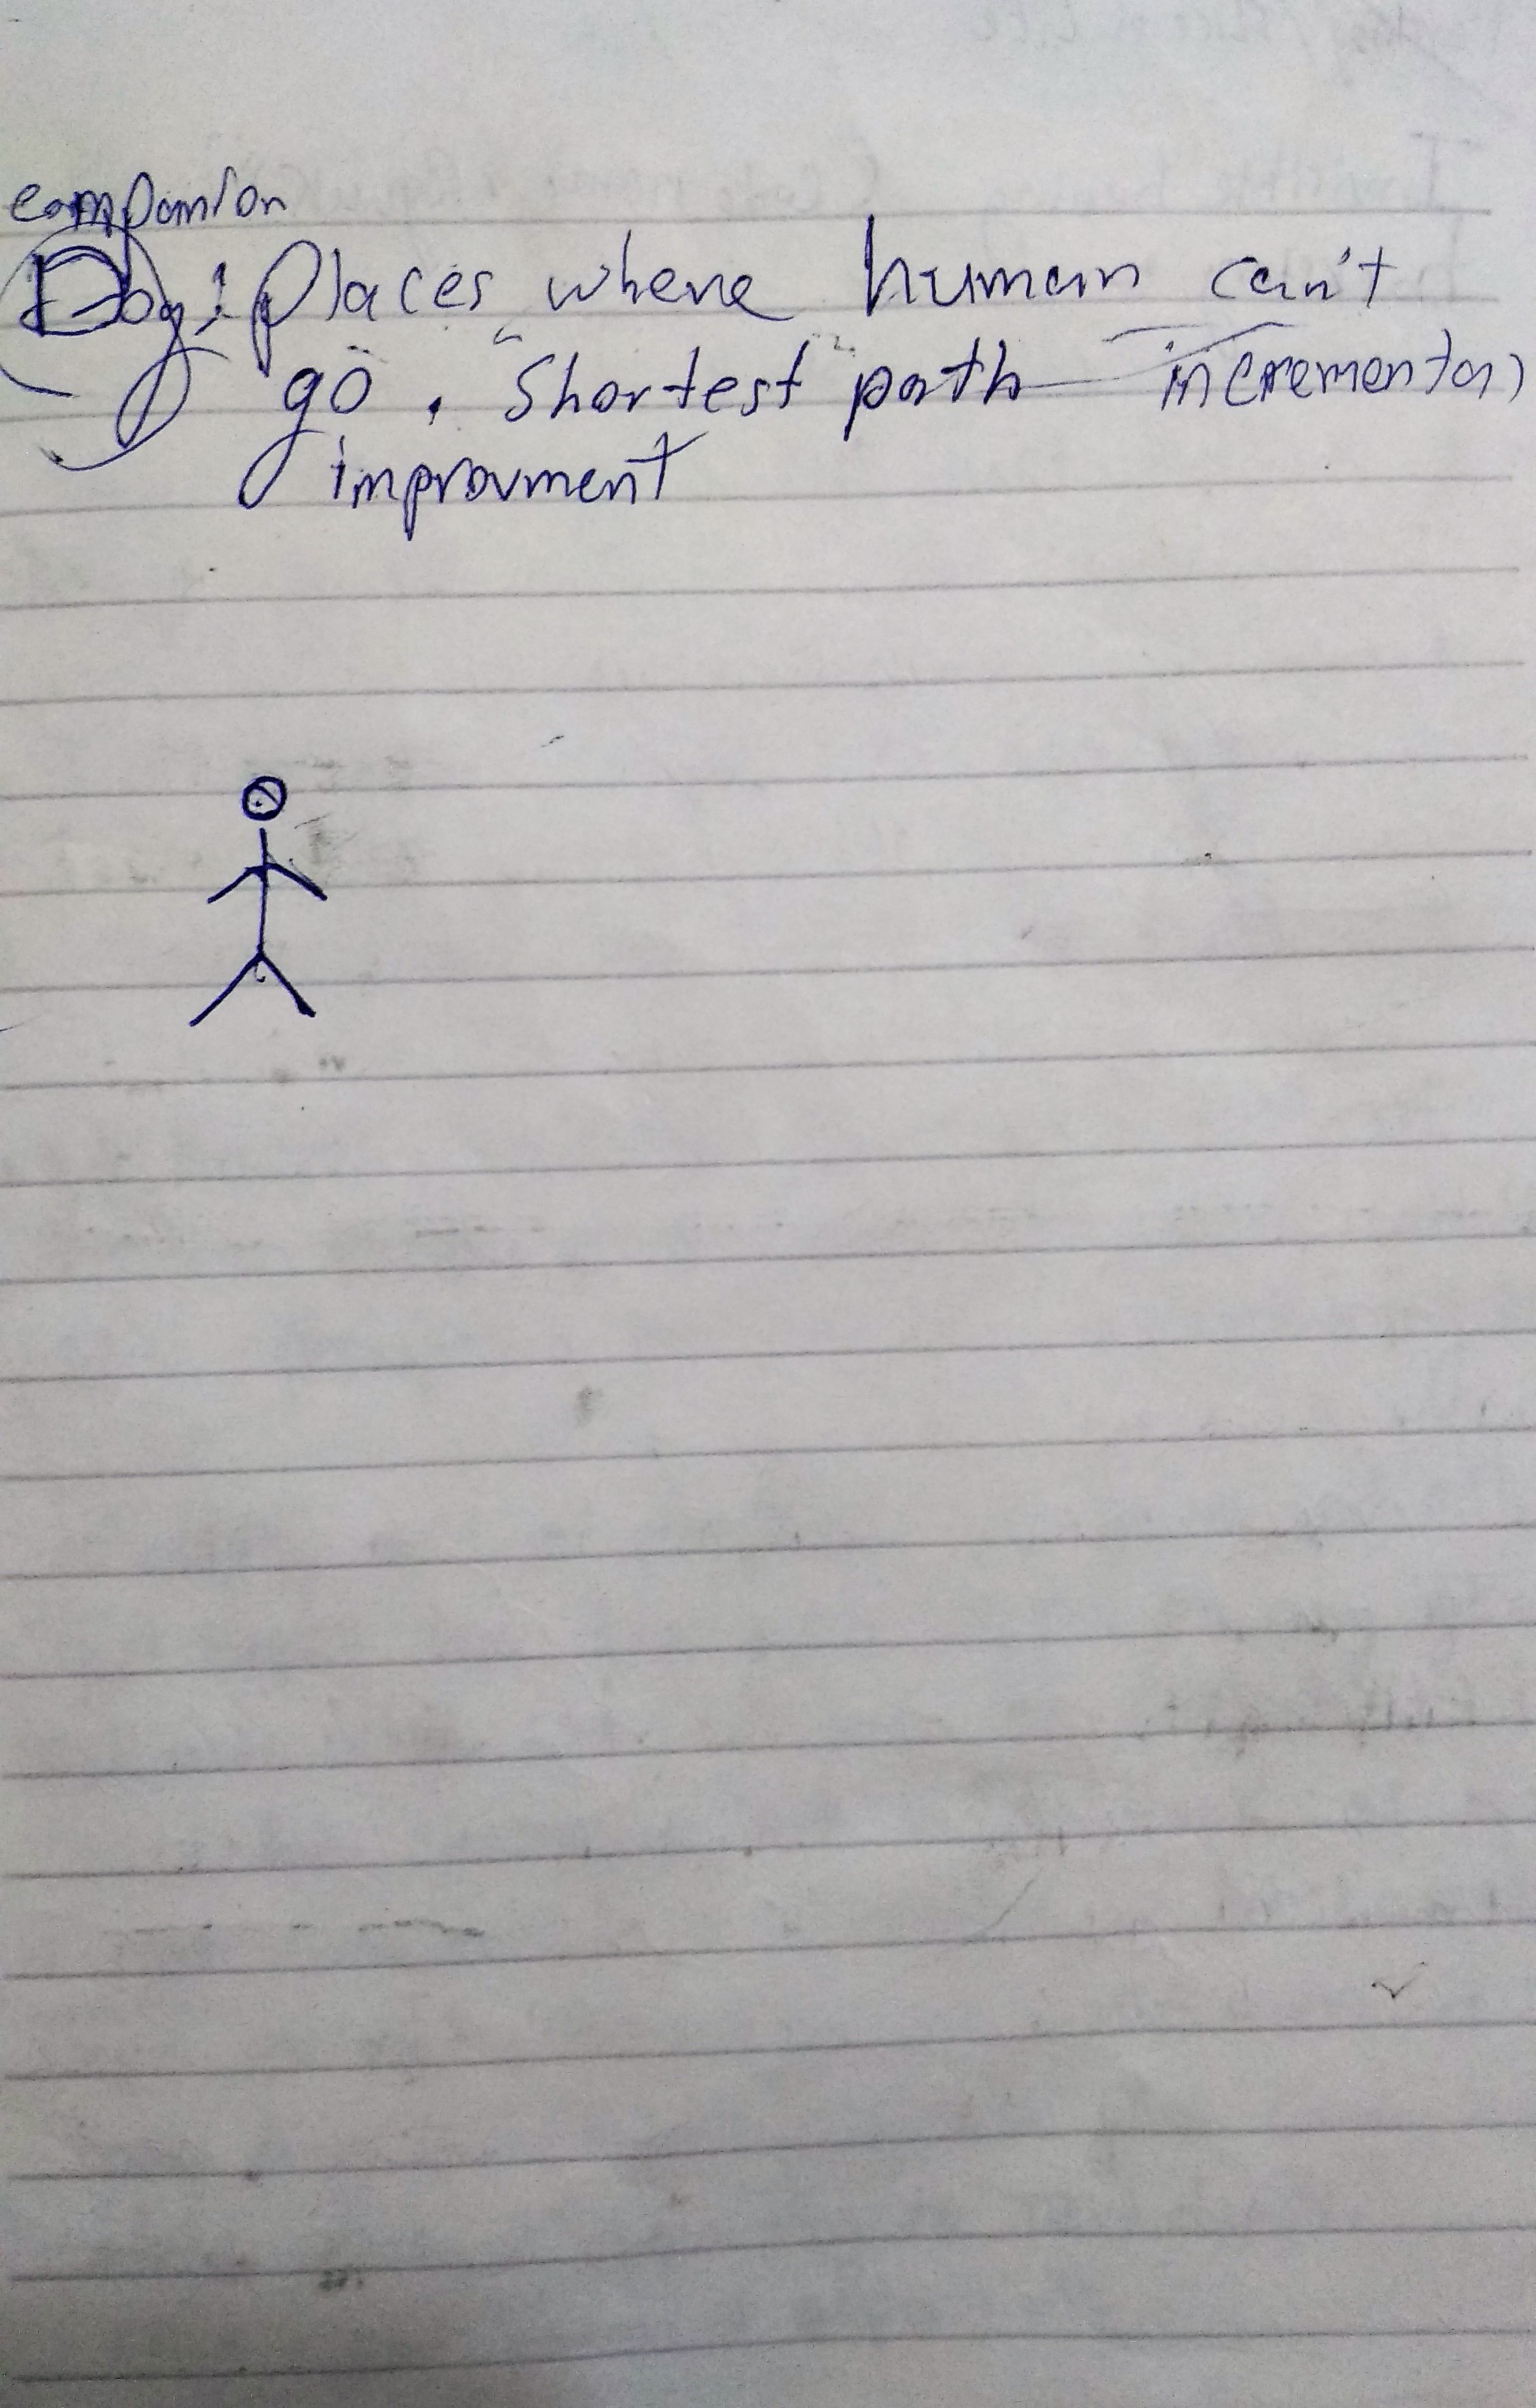 companion
Dog: Places where human can't
go. Shortest path incremental
improvment